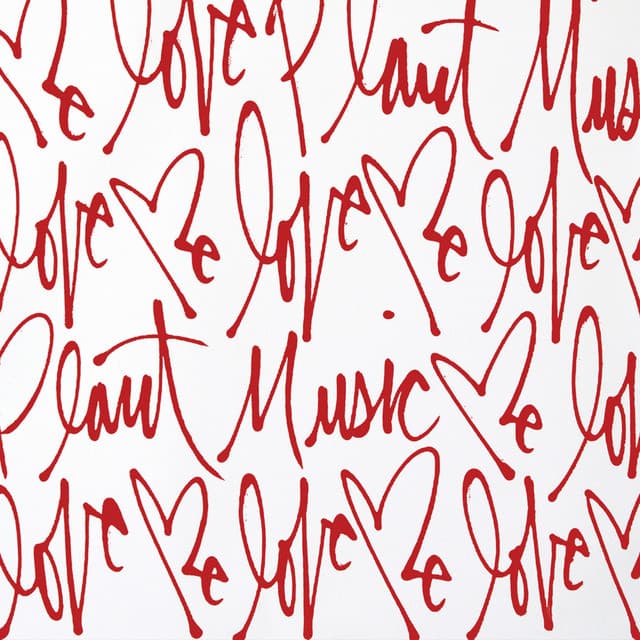 Me love Plaut Mus
love Me love Me love
Plaut Music Me lov
love Me love Me love